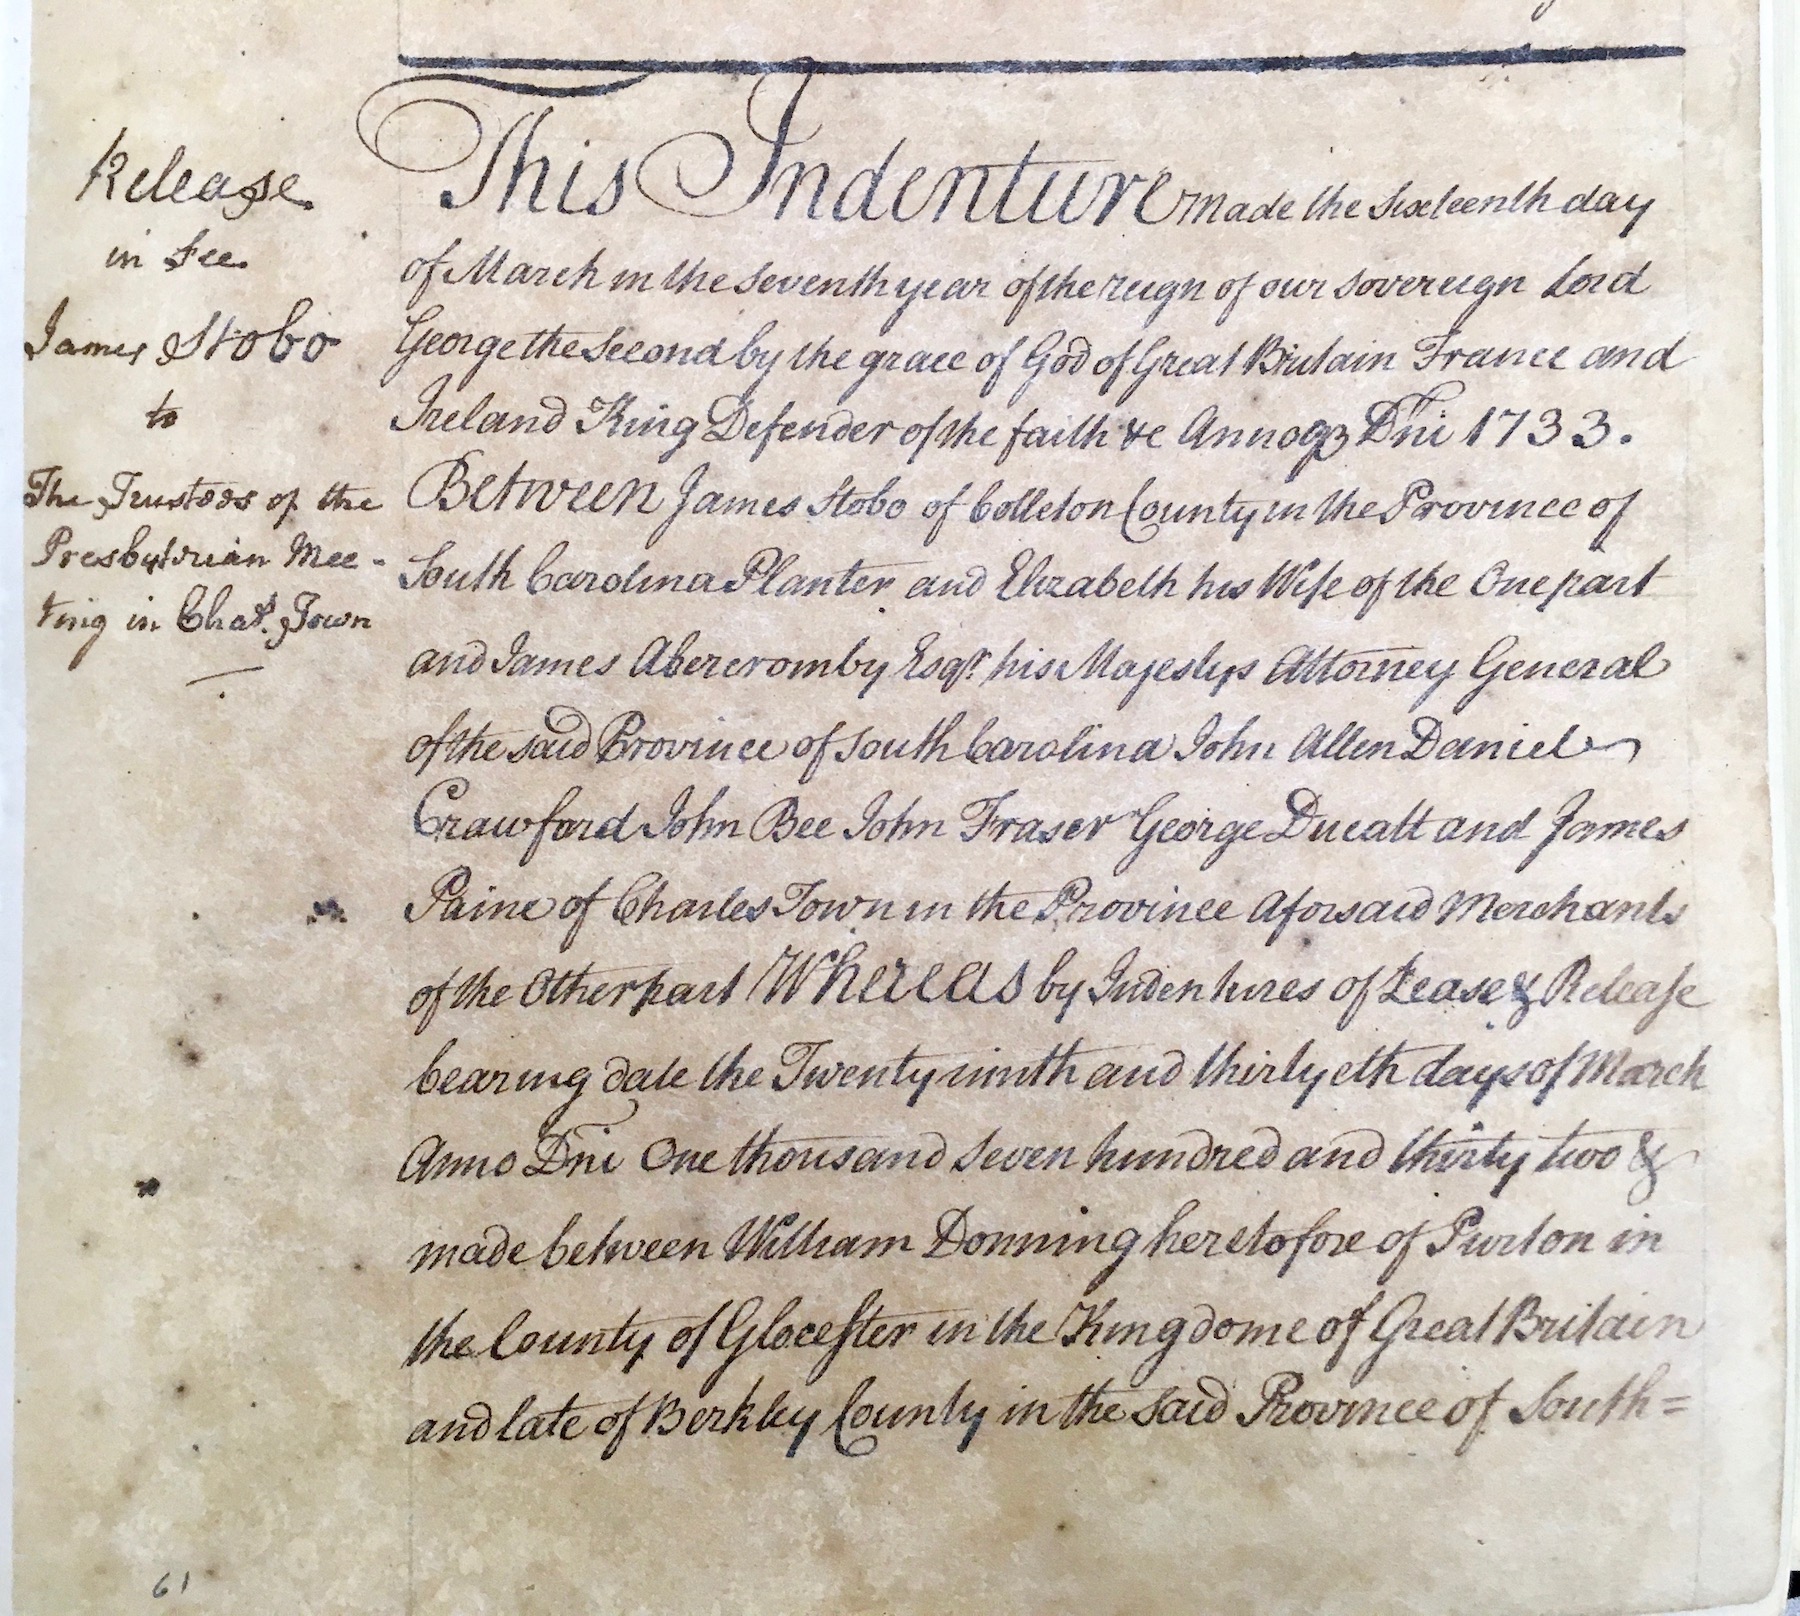 Release
in Fee
James Stobo
to
The Trustees of the
Presbyterian Mee-
ting in Chas. Town
This Indenture made the Sixteenth day
of March in the seventh year of the reign of our sovereign Lord
George the Second by the grace of God of Great Britain France and
Ireland King Defender of the faith &c Annoqz Dni 1733.
Between James Stobo of Colleton County in the Province of
South Carolina Planter and Elizabeth his Wife of the One part
and James Abercromby Esqr. his Majestys Attorney General
of the said Province of South Carolina John Allen Daniel
Crawford John Bee John Fraser George Ducatt and James
Paine of Charles Town in the Province Aforsaid Merchants
of the Other part Whereas by Indentures of Lease & Release
bearing date the Twenty ninth and thirtyeth days of March
Anno Dni One thousand seven hundred and thirty two &
made between William Donning heretofore of Purton in
the County of Glocester in the Kingdome of Great Britain
and late of Berkley County in the said Province of South=
61